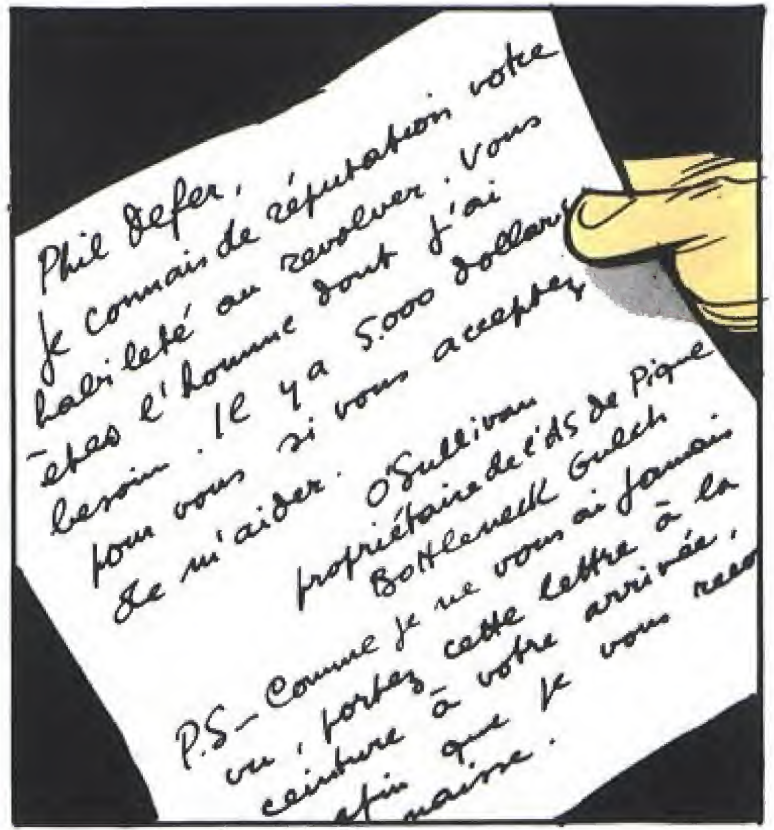 Phil Defer,
Je connais de réputation votre
habileté au revolver. Vous
êtes l'homme dont j'ai
besoin. Il y a 5.000 dollars
pour vous si vous acceptez
de m'aider.
O'Sullivan
propriétaire de l'AS de Pique
Bottleneck Gulch
P.S_ Comme je ne vous ai jamais
vu, portez cette lettre à la
ceinture à votre arrivée,
afin que je vous recon
naisse.